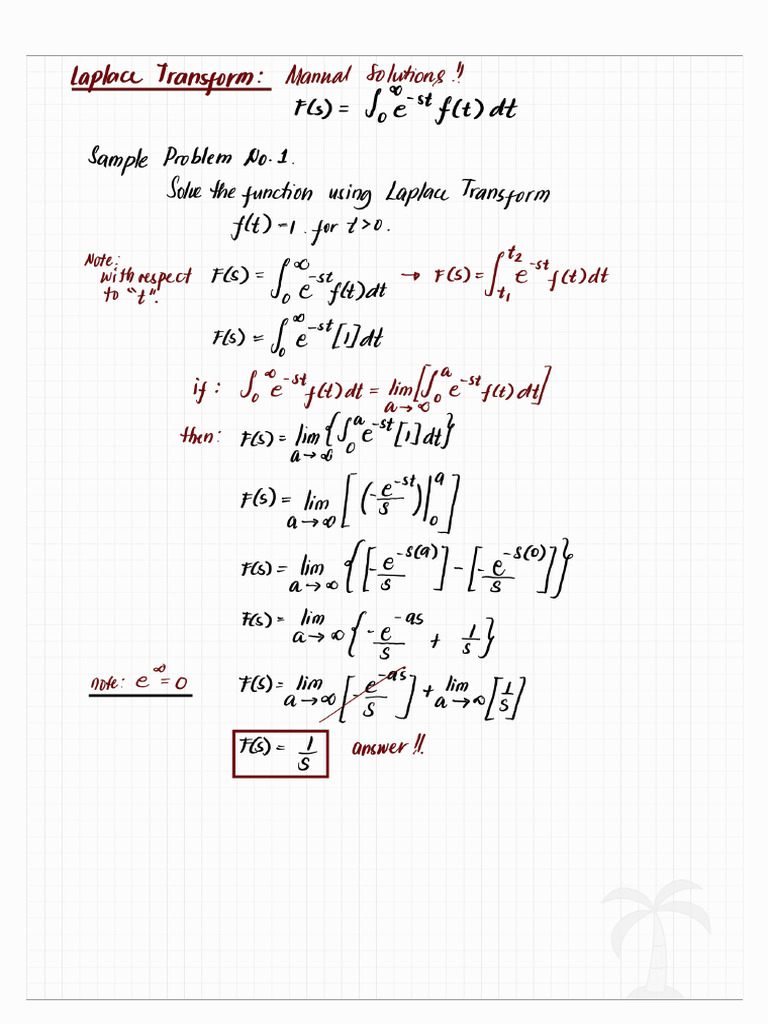 Laplace Transform: Manual Solutions!!
F(s) = ∫₀^∞ e^{-st} f(t) dt
Sample Problem No. 1.
Solve the function using Laplace Transform
f(t) - 1. for t > 0.
Note: with respect to "t".
F(s) = ∫₀^∞ e^{-st} f(t) dt → F(s) = ∫_{t₁}^{t₂} e^{-st} f(t) dt
F(s) = ∫₀^∞ e^{-st} [1] dt
if: ∫₀^∞ e^{-st} f(t) dt = lim_{a→∞} [∫₀^a e^{-st} f(t) dt]
then: F(s) = lim_{a→∞} {∫₀^a e^{-st} [1] dt}
F(s) = lim_{a→∞} [(-e^{-st}/s)|₀^a]
F(s) = lim_{a→∞} {[-e^{-s(a)}/s] - [-e^{-s(0)}/s]}
F(s) = lim_{a→∞} {-e^{-as}/s + 1/s}
note: e^∞ = 0
F(s) = lim_{a→∞} [-e^{-as}/s] + lim_{a→∞} [1/s]
F(s) = 1/s answer!!